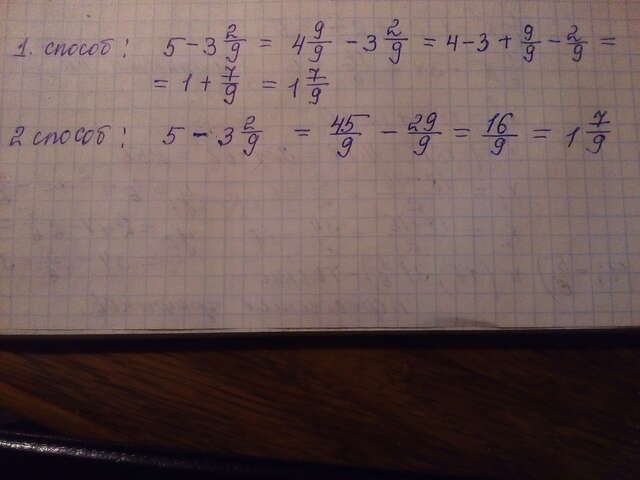 1. способ: 5 - 3 2/9 = 4 9/9 - 3 2/9 = 4 - 3 + 9/9 - 2/9 =
= 1 + 7/9 = 1 7/9
2 способ: 5 - 3 2/9 = 45/9 - 29/9 = 16/9 = 1 7/9